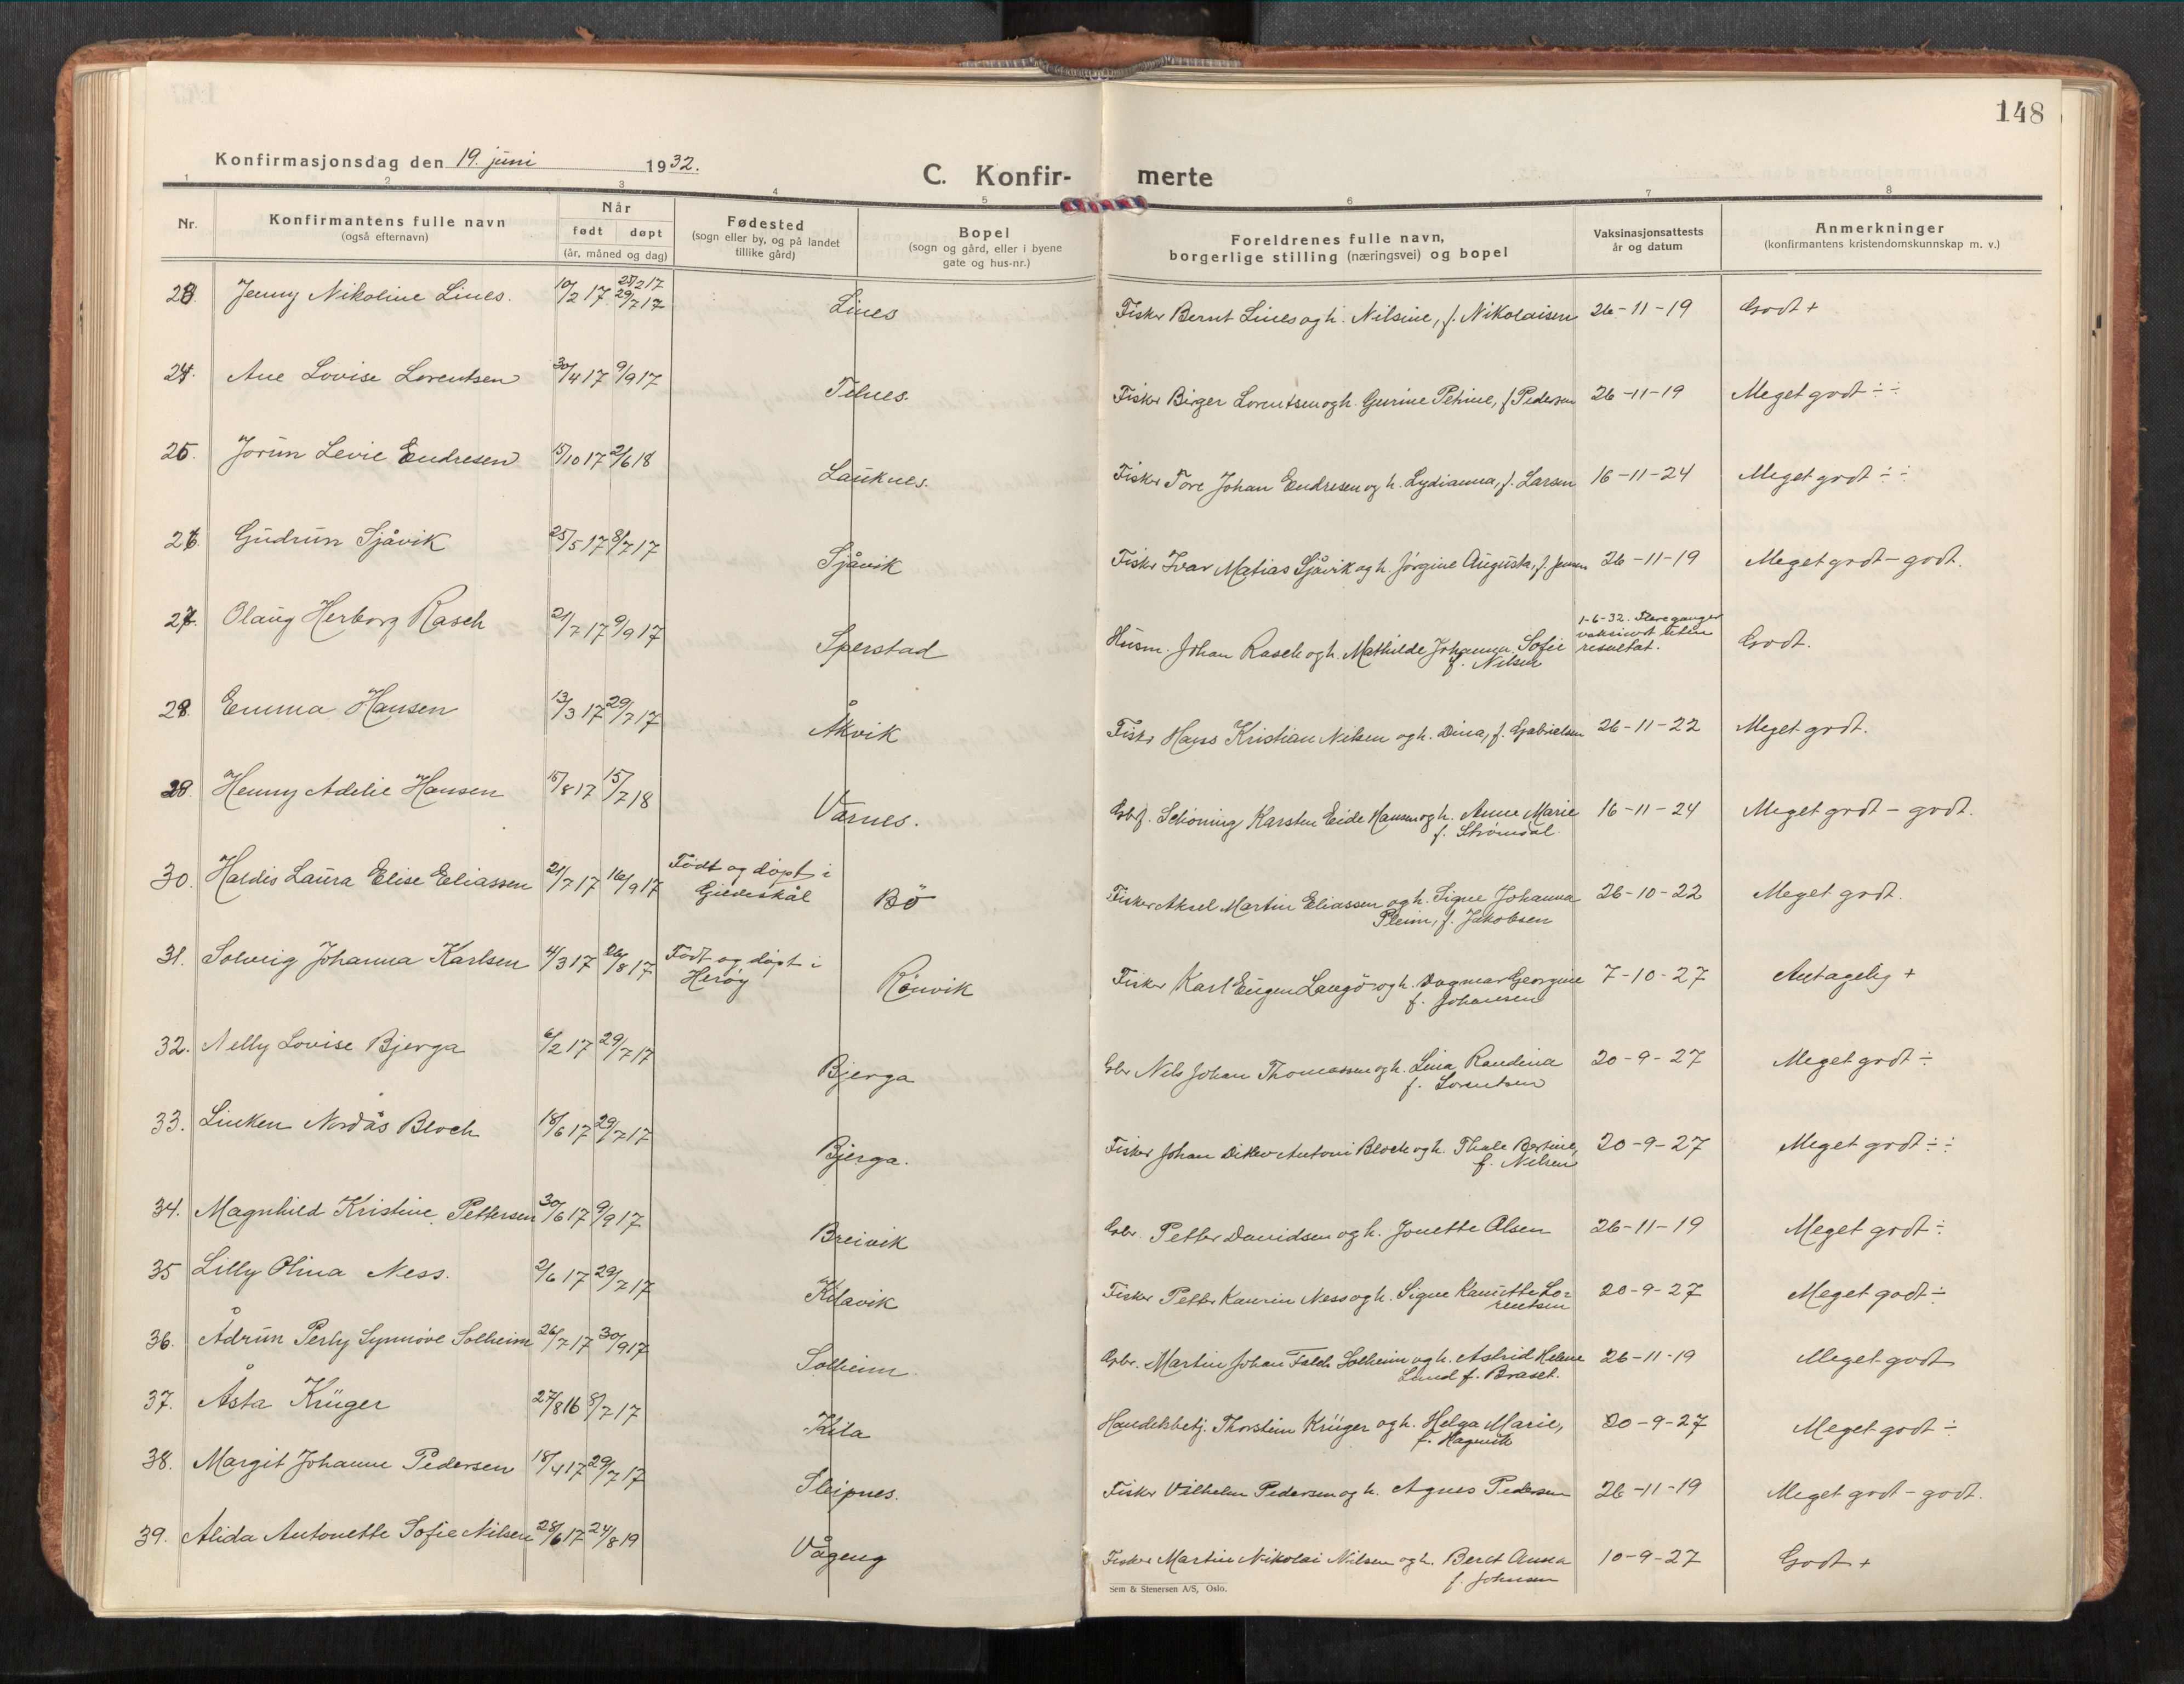 148
Konfirmasjonsdag den 19. juni 1932.
C. Konfir- merte
1 2 3 4 5 6 7 8
Nr.
Konfirmantens fulle navn
(også efternavn)
Når
født døpt
(år, måned og dag)
Fødested
(sogn eller by, og på landet
tillike gård)
Bopel
(sogn og gård, eller i byene
gate og hus-nr.)
Foreldrenes fulle navn,
borgerlige stilling (næringsvei) og bopel
Vaksinasjonsattests
år og datum
Anmerkninger
(konfirmantens kristendomskunnskap m. v.)
23. Jenny Nikoline Lines. 10/2 17 29/7 17 Lines Fisker Bernt Lines og h. Nilsine, f. Nikolaisen 26-11-19 Godt +
24. Ane Lovise Lorentsen 30/4 17 9/9 17 Telnes. Fisker Birger Lorentsen og h. Gurine Petrine, f. Pedersen 26-11-19 Meget godt ÷ ÷
25. Jorun Levie Endresen 15/10 17 2/6 18 Lauknes. Fisker Tore Johan Endresen og h. Lydianna, f. Larsen 16-11-24 Meget godt ÷ ÷
26. Gudrun Sjåvik 25/5 17 8/7 17 Sjåvik Fisker Ivar Matias Sjåvik og h. Jørgine Augusta, f. Jensen 26-11-19 Meget godt - godt.
27. Olaug Herborg Rasch 21/7 17 9/9 17 Sperstad Husm. Johan Rasch og h. Mathilde Johanna Sofie
f. Nilsen
1-6-32. Flere ganger
vaksinert uten
resultat.
Godt.
28. Emma Hansen 13/3 17 29/7 17 Åkvik Fisker Hans Kristian Nilsen og h. Dina, f. Gabrielsen 26-11-22 Meget godt.
29. Henny Adelie Hansen 15/8 17 15/7 18 Varnes. Schøning Karsten Eide Hansen og h. Anne Marie
f. Strømdal.
16-11-24 Meget godt - godt.
30. Haldis Laura Elise Eliassen 21/7 17 16/9 17 Født og døpt i
Gildeskål
Bö Fisker Aksel Martin Eliassen og h. Signe Johanna
Pleim, f. Jakobsen
26-10-22 Meget godt.
31. Solveig Johanna Karlsen 4/3 17 26/8 17 Født og døpt i
Herøy
Rönvik Fisker Karl Eugen Langö og h. Dagmar Georgine
f. Johansen
7-10-27 Antagelig +
32. Nelly Lovise Bjerga 6/2 17 29/7 17 Bjerga Gbr. Nils Johan Thomassen og h. Lina Randina
f. Lorentsen
20-9-27 Meget godt ÷
33. Linken Nordås Bloch 18/6 17 29/7 17 Bjerga. Fisker Johan Ditlev Antoni Bloch og h. Thale Bertine,
f. Nilsen
20-9-27 Meget godt ÷ ÷
34. Magnhild Kristine Pettersen 30/6 17 9/9 17 Breivik Gbr. Petter Davidsen og h. Jonette Olsen 26-11-19 Meget godt ÷
35 Lilly Olina Ness. 2/6 17 29/7 17 Kilavik Fisker Petter Kaurin Ness og h. Signe Kanutte Lo-
rentsen
20-9-27 Meget godt ÷
36. Ådrun Perly Synnøve Solheim 26/7 17 30/9 17 Solheim. Gbr. Martin Johan Falch Solheim og h. Astrid Helene
Lund f. Braset.
26-11-19 Meget godt
37. Åsta Krüger 27/8 16 8/7 17 Kila Handelsbetj. Thorstein Krüger og h. Helga Marie,
f. Hagevik
20-9-27 Meget godt ÷
38. Margit Johanne Pedersen 18/4 17 29/7 17 Sleipnes. Fisker Vilhelm Pedersen og h. Agnes Pedersen 26-11-19 Meget godt - godt.
39. Alida Antonette Sofie Nilsen 28/6 17 24/8 19 Vågeng Fisker Martin Nikolai Nilsen og h. Beret Anna
f. Johnsen
10-9-27 Godt +
Sem & Stenersen A/S, Oslo.